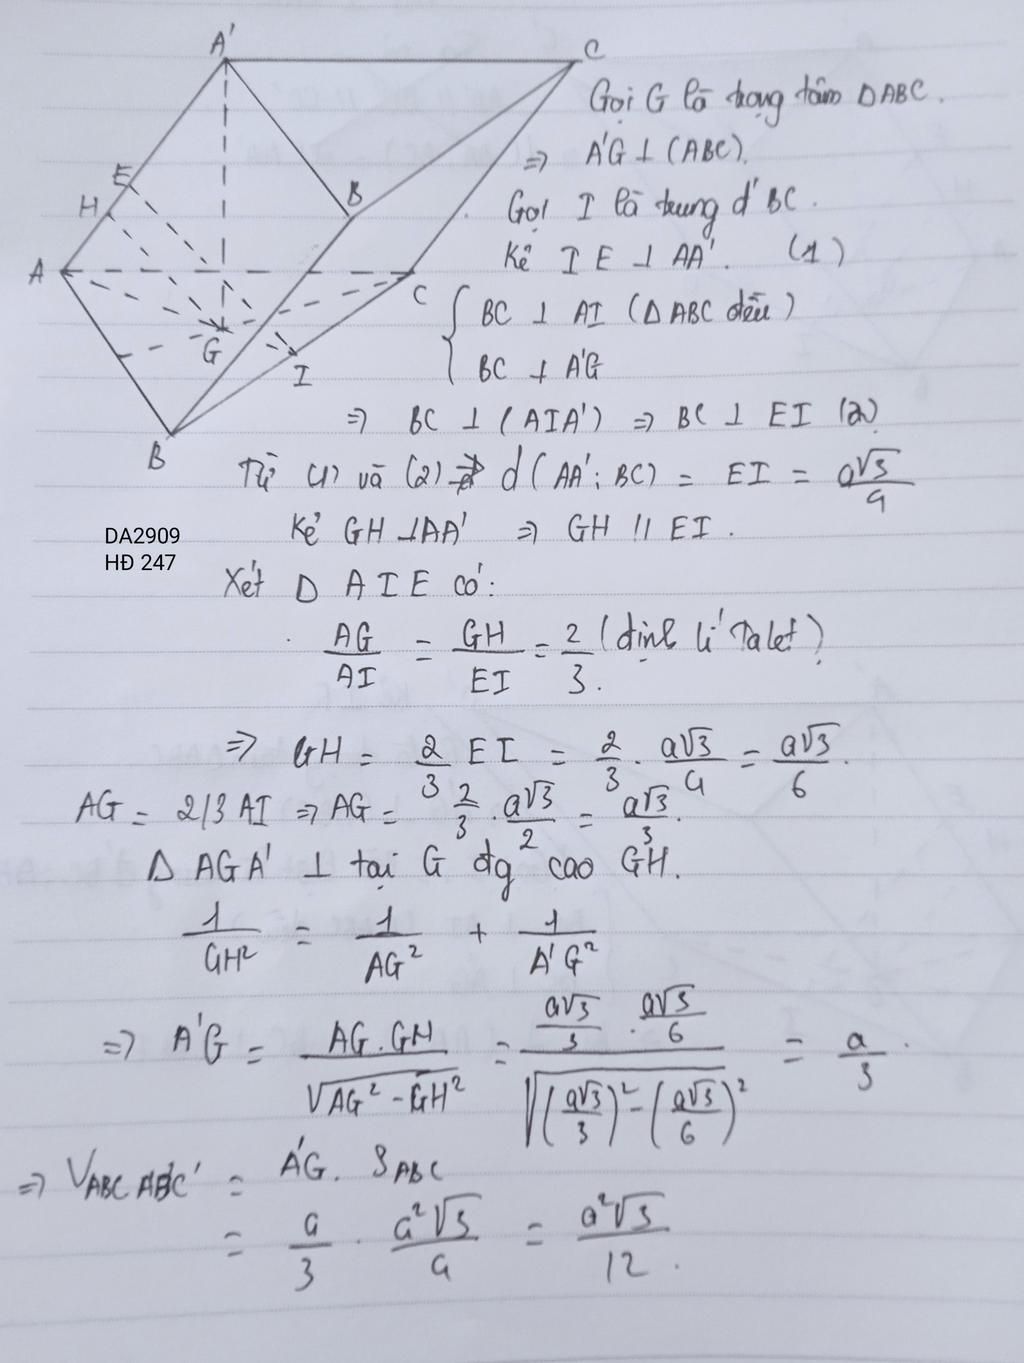 A'
C
Gọi G là trọng tâm ΔABC.
=> A'G ⊥ (ABC).
E
H
B
Gọi I là trung đ' BC.
Kẻ IE ⊥ AA'. (1)
A
C
{ BC ⊥ AI (ΔABC đều)
BC ⊥ A'G
G
I
=> BC ⊥ (AIA') => BC ⊥ EI (2)
B
Từ (1) và (2) => d(AA'; BC) = EI = a√3/4
DA2909
HĐ 247
Kẻ GH ⊥ AA' => GH // EI.
Xét Δ AIE có:
AG/AI = GH/EI = 2/3. (định lí Talet)
=> GH = 2/3 EI = 2/3 . a√3/4 = a√3/6.
AG = 2/3 AI => AG = 2/3 . a√3/2 = a√3/3.
Δ AGA' ⊥ tại G đg² cao GH.
1/GH² = 1/AG² + 1/A'G²
=> A'G = AG.GH/√(AG² - GH²) = (a√3/3 . a√3/6)/√((a√3/3)² - (a√3/6)²) = a/3.
=> V ABC A'B'C' = A'G. S ABC
= a/3 . a²√3/4 = a²√3/12.